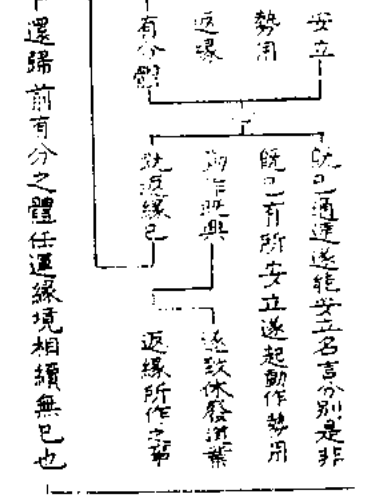 安立
勢用
返緣
有分體
既已通達遂能安立名言分別是非
既已有所安立遂起動作勢用
動作既興
遂致休發諸業
既返緣已
返緣所作之事
還歸前有分之體任運緣境相續無已也